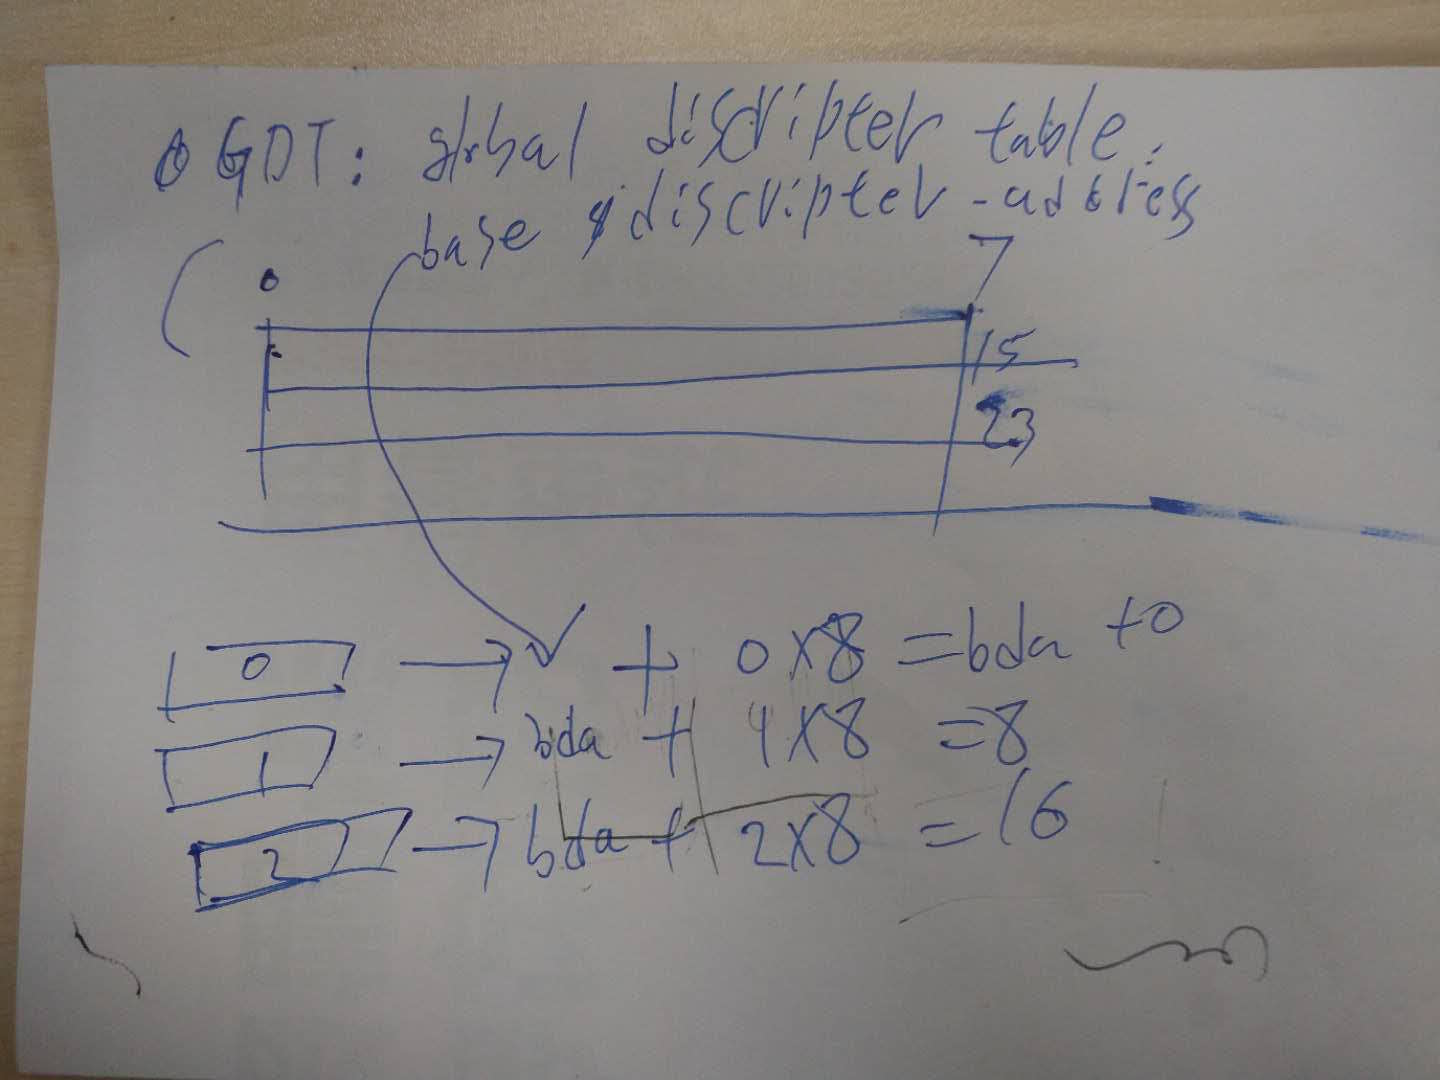 GDT: global discripter table.
base discripter-address
0 7
15
23
0 → ✓ + 0×8 = bda +0
1 → bda + 1×8 = 8
2 → bda + 2×8 = 16